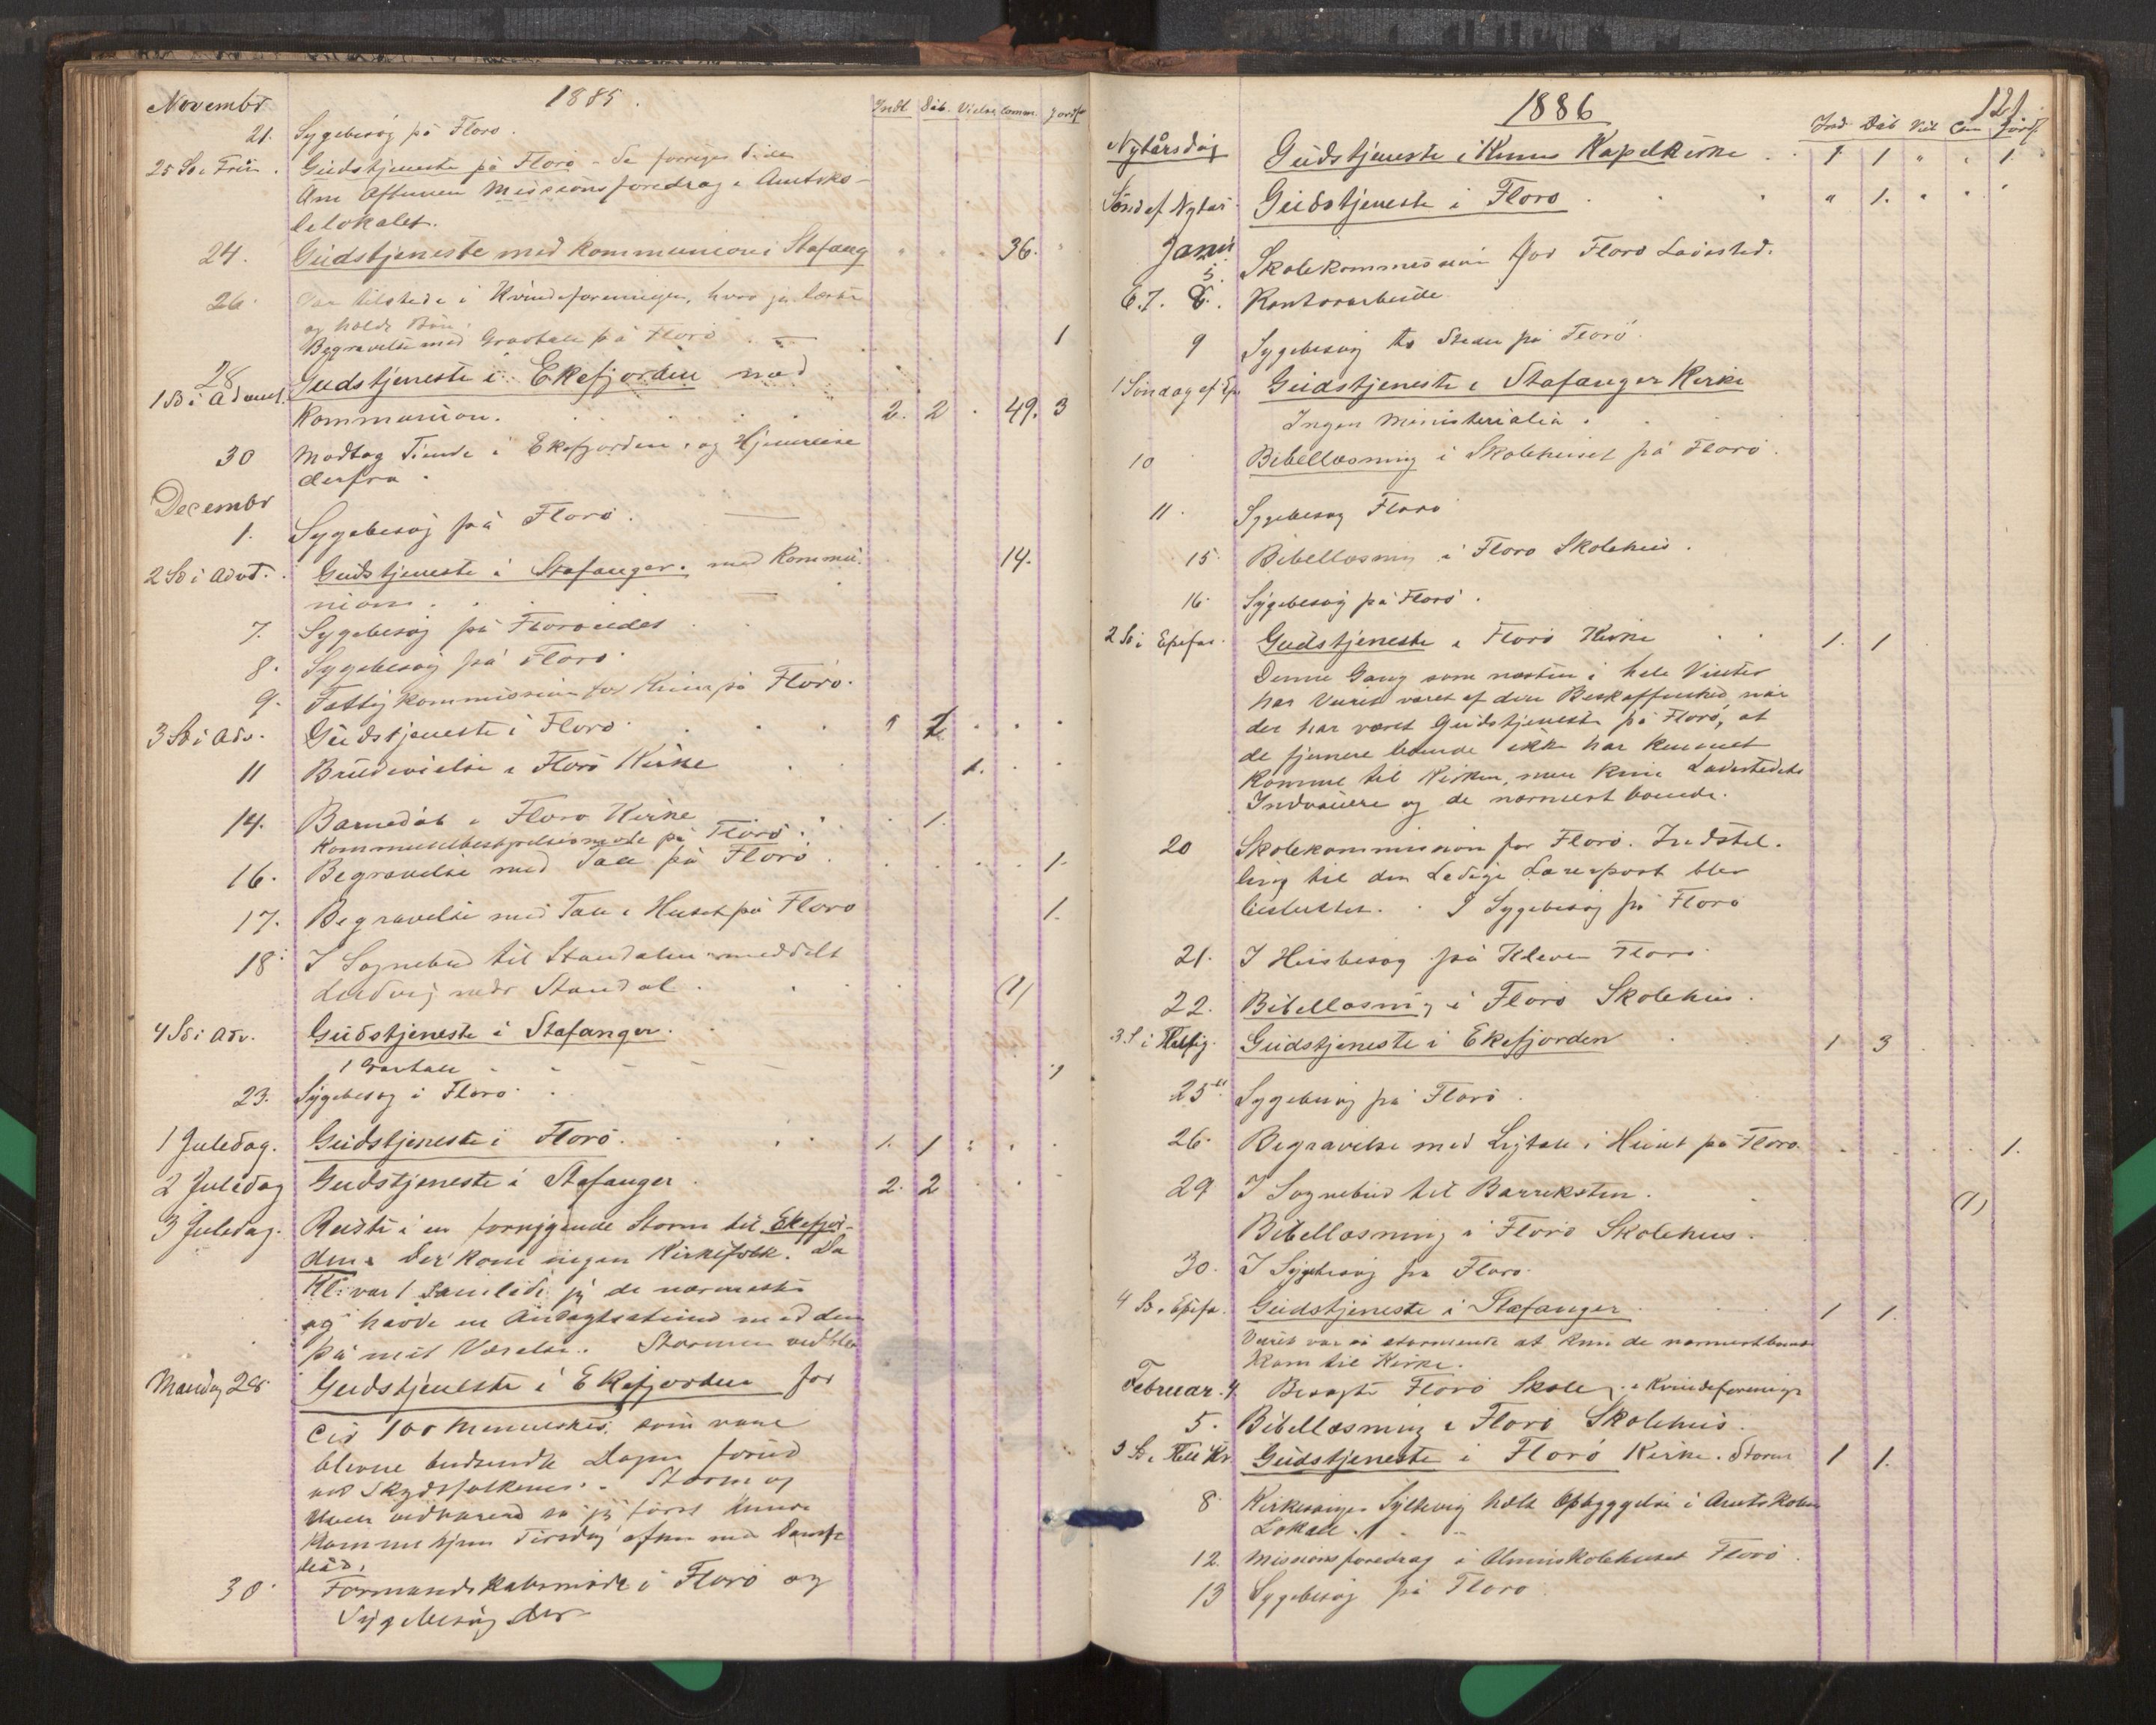 Novembr 1885. Indl Dåb. Vielse Comm. Jordf
21. Sygebesøg på Florø.
25 Sø e Trin. Gudstjeneste på Florø - Se forriges Side
Om Aftenen Missionsforedrag i Amtsko-
lelokalet.
24. Gudstjeneste med Kommunion i Stafang 36.
26. Var tilstede i Kvindeforeningen, hvor jeg læste
og holdt Bøn.
Begravelse med Gravtale på Florø 1
28
1 Sø i Advent. Gudstjeneste i Ekefjorden med
Kommunion. 2. 2 49. 3
30 Modtog Tiende i Ekefjorden og Hjemreise
derfra.
Decembr
1. Sygebesøg på Florø.
2 Sø i Advt. Gudstjeneste i Stafanger. med Kommu- 14.
nion.
7. Sygebesøg på Florølandet
8. Sygebesøg på Florø
9. Fattigkommission for Kinn på Florø.
3 Sø i Adv. Gudstjeneste i Florø
11 Brudevielse i Florø Kirke 1.
14. Barnedåb i Florø Kirke 1.
Kommunebestyrelsesmøde på Florø.
16. Begravelse med Tale på Florø. 1.
17. Begravelse med Tale i Huset på Florø 1.
18. I Sognebud til Standalen meddelt
Ludvig nedr Standal. (1)
4 Sø i Adv. Gudstjeneste i Stafanger.
1 Gravtale
23. Sygebesøg i Florø
1 Juledag. Gudstjeneste i Florø. 1. 1
2 Juledag Gudstjeneste i Stafanger 2. 2
3 Juledag. Reiste i en forrygende Storm til Ekefjor-
den. Der kom ingen Kirkefolk. Da
Kl. var 1 samlede jeg de nærmeste
og havde en Andagtsstund med dem
på mit Værelse. Stormen vedblev
Mandag 28. Gudstjeneste i Ekefjorden for
100 Mennesker, som vare
blevne budsendte Dagen forud
ved Skydsfolkene. Storm og
Uveir vedvarede så jeg først kunde
komme hjem Tirsdag aften med Damp-
båd.
30. Formandskabsmøde i Florø og
Sygebesøg der
1886 121.
Ind Dåb Viel Com Jordf.
Nytårsdag Gudstjeneste i Kinns Kapelkirke 1 1 1
Sønd ef. Nytår Gudstjeneste i Florø 1.
Janr
5. Skolekommission for Florø Ladested.
6. 7. 8. Kontorarbeide
9 Sygebesøg to Steder på Florø
1 Søndag ef. Ep. Gudstjeneste i Stafanger Kirke
Ingen Ministerialia.
10 Bibellæsning i Skolehuset på Florø.
11. Sygebesøg Florø
15 Bibellæsning i Florø Skolehus.
16 Sygebesøg på Florø.
2 Sø i Epefan. Gudstjeneste i Florø Kirke 1. 1
Denne Gang som næsten i hele Vinter
har Veiret været af den Beskaffenhed, når
der har været Gudstjeneste på Florø, at
de fjernere boende ikke har kunnet
komme til Kirken, men kun Ladestedets
Indvånere og de nærmest boende.
20 Skolekommission for Florø. Indstil-
ling til den Ledige Lærerpost blev
besluttet. I Sygebesøg på Florø
21. I Husbesøg på Kleven Florø
22. Bibellæsning i Florø Skolehus.
3 S. i Hellig. Gudstjeneste i Ekefjorden 1 3
25de Sygebesøg på Florø.
26. Begravelse med Ligtale i Huset på Florø. 1.
29 I Sognebud til Barreksten. (1)
Bibellæsning i Florø Skolehus.
30. I Sygebesøg på Florø.
4 Sø. Epefa. Gudstjeneste i Stafanger 1 1.
Veiret var så stormende at kun de nærmestboende
kom til Kirke.
Februar. 4 Besøgte Florø Skole, i Kvindeforening
5. Bibellæsning i Florø Skolehus.
5 Sø. Hell Kr Gudstjeneste i Florø Kirke. Storm 1 1.
8 Kirkesanger Syltevig holdt Opbyggelse i Amtskolens
Lokale.
12. Missionsforedrag i Almueskolehuset Florø.
13 Sygebesøg på Florø